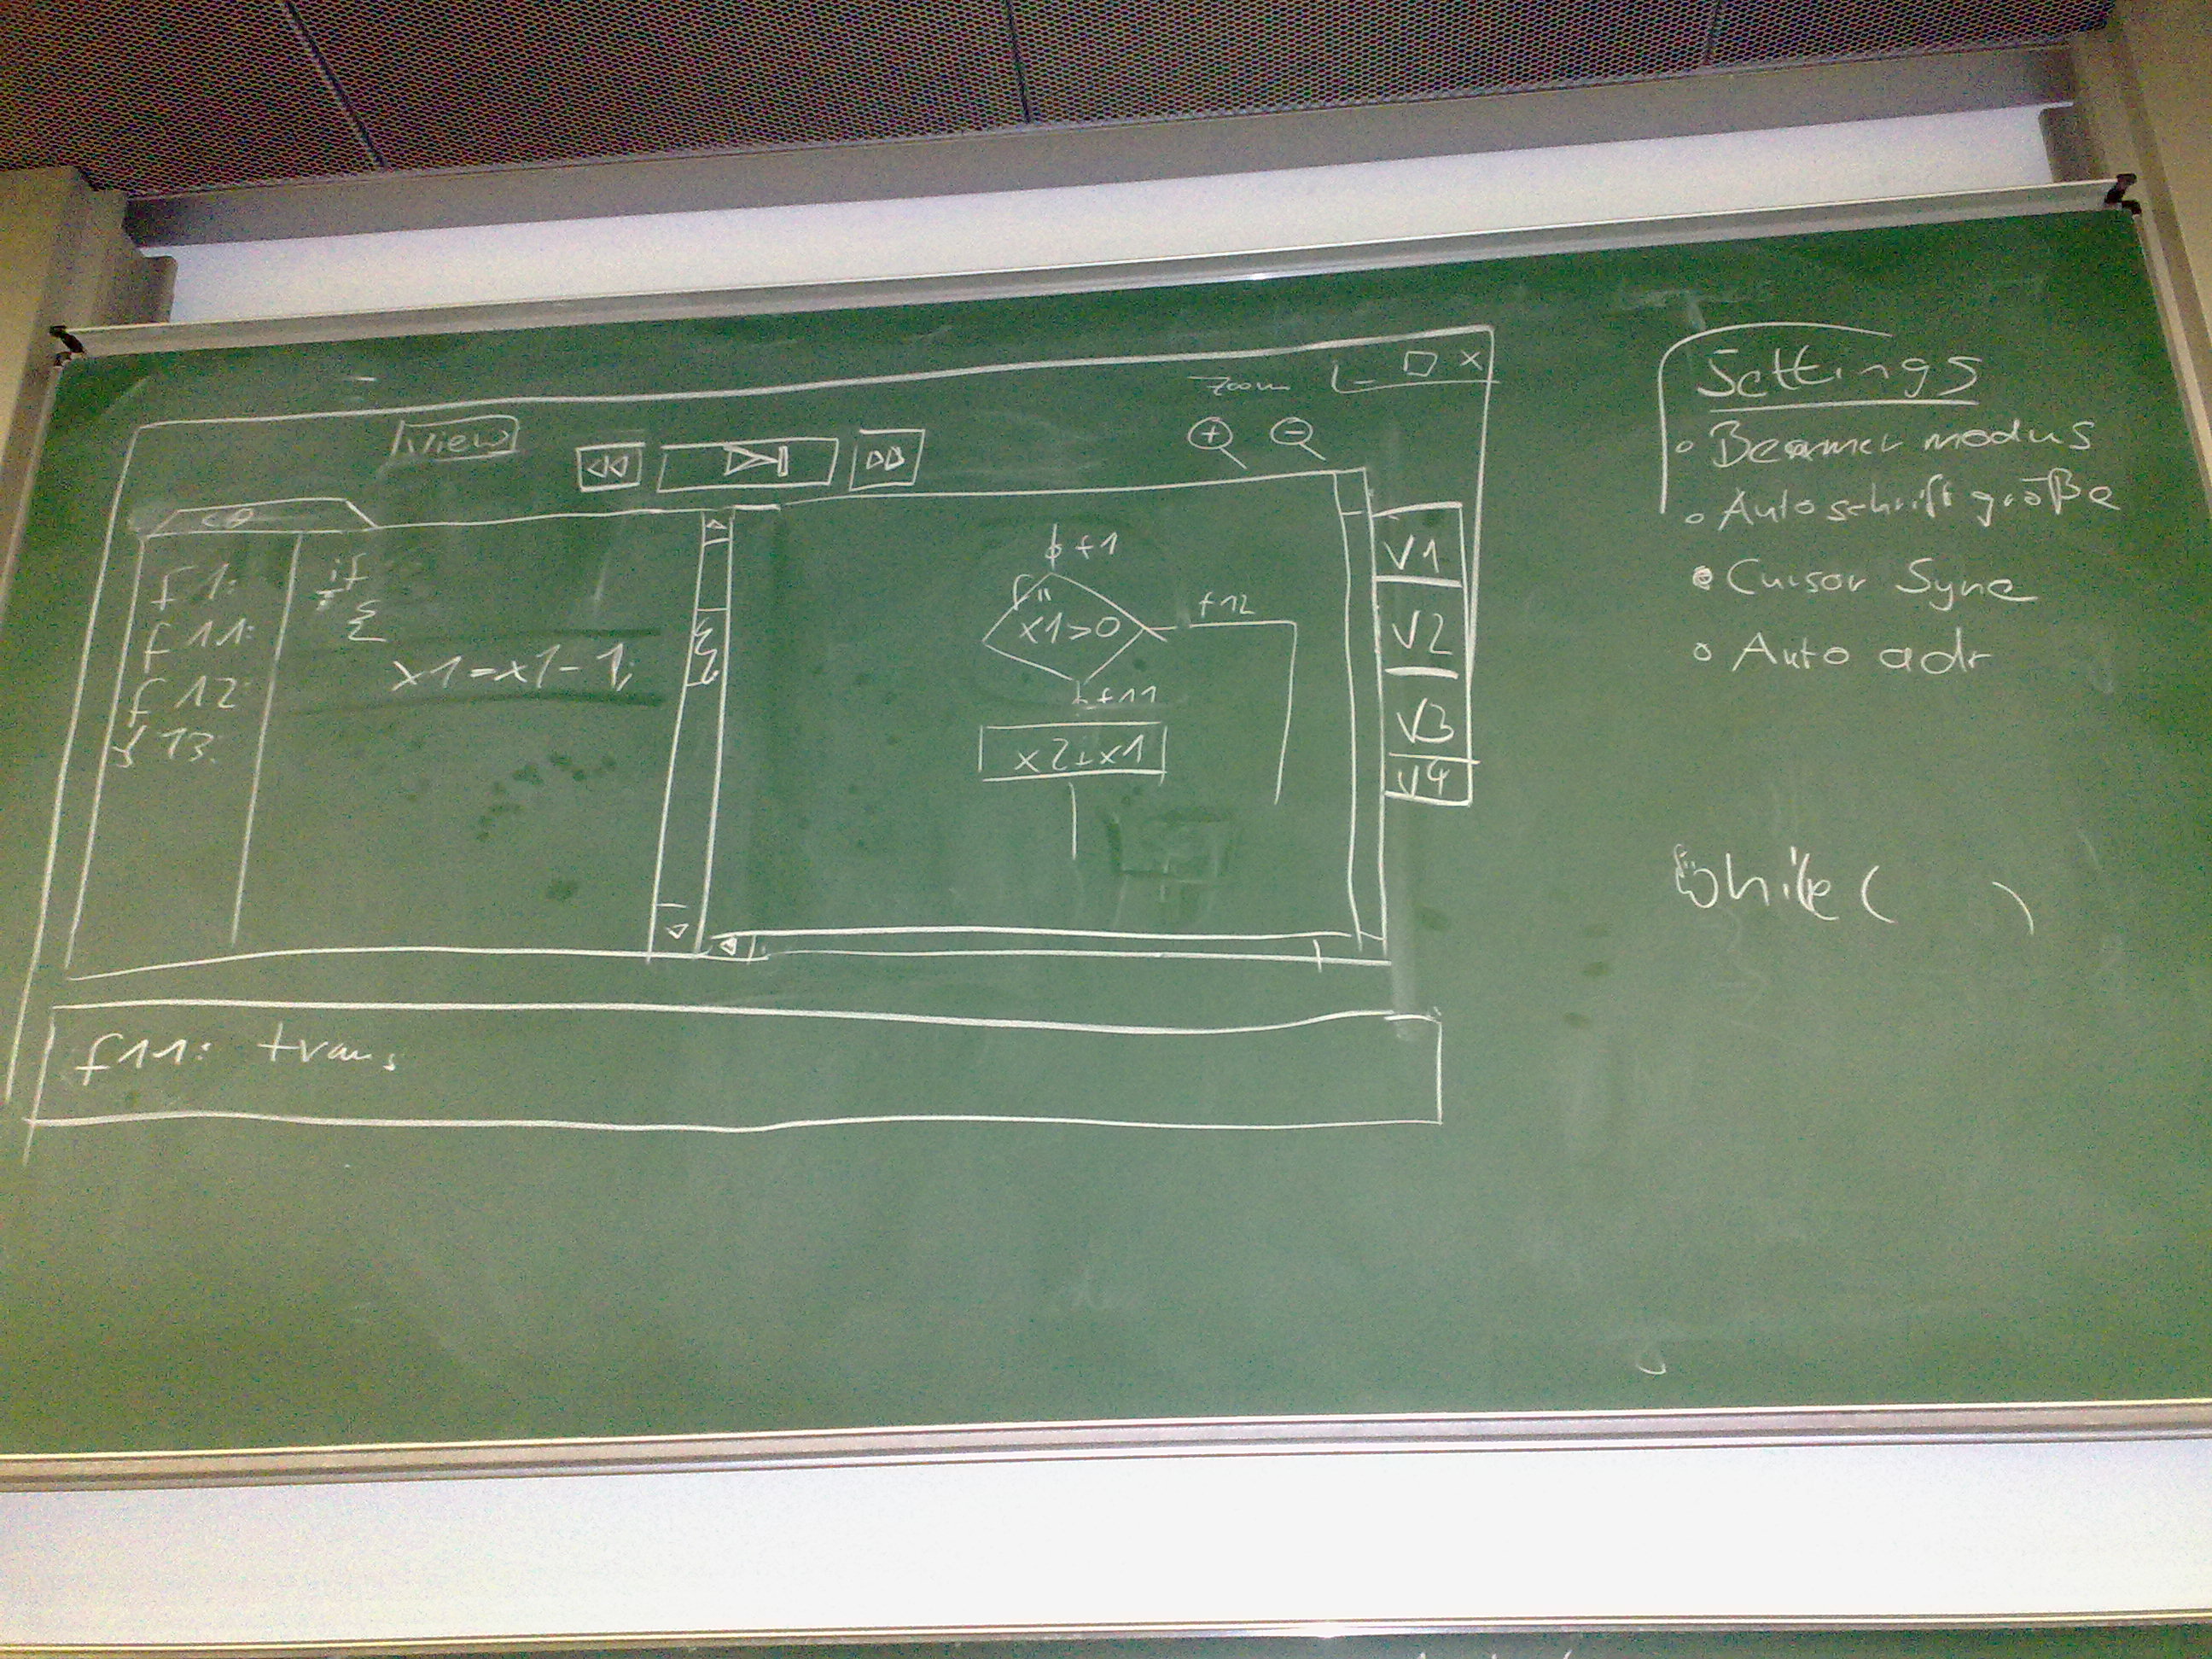 Zoom
View
f1:
f11:
f12:
f13:
if
{
x1=x1-1;
f1
x1>0
f12
f11
x2+x1
V1
V2
V3
V4
f11: trans
Settings
Beamer modus
Auto schriftgröße
Cursor Sync
Auto adr
while ( )